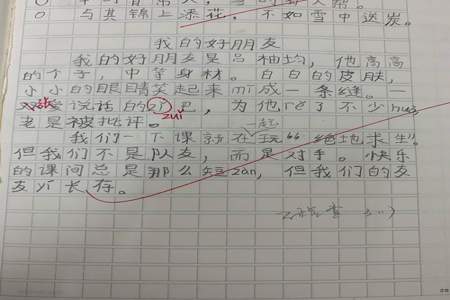 与其锦上添花，不如雪中送炭。
我的好朋友
我的好朋友是吕柚均，他高高
的个子，中等身材。白白的皮肤，
小小的眼睛笑起来mī成一条缝。一
张爱说话的巴，为他rě了不少huò，
zuǐ
老是被批评。
一起
我们一下课就在玩“绝地求生”。
但我们不是队友，而是对手。快乐
的课间总是那么短zàn，但我们的友
友yì长存。